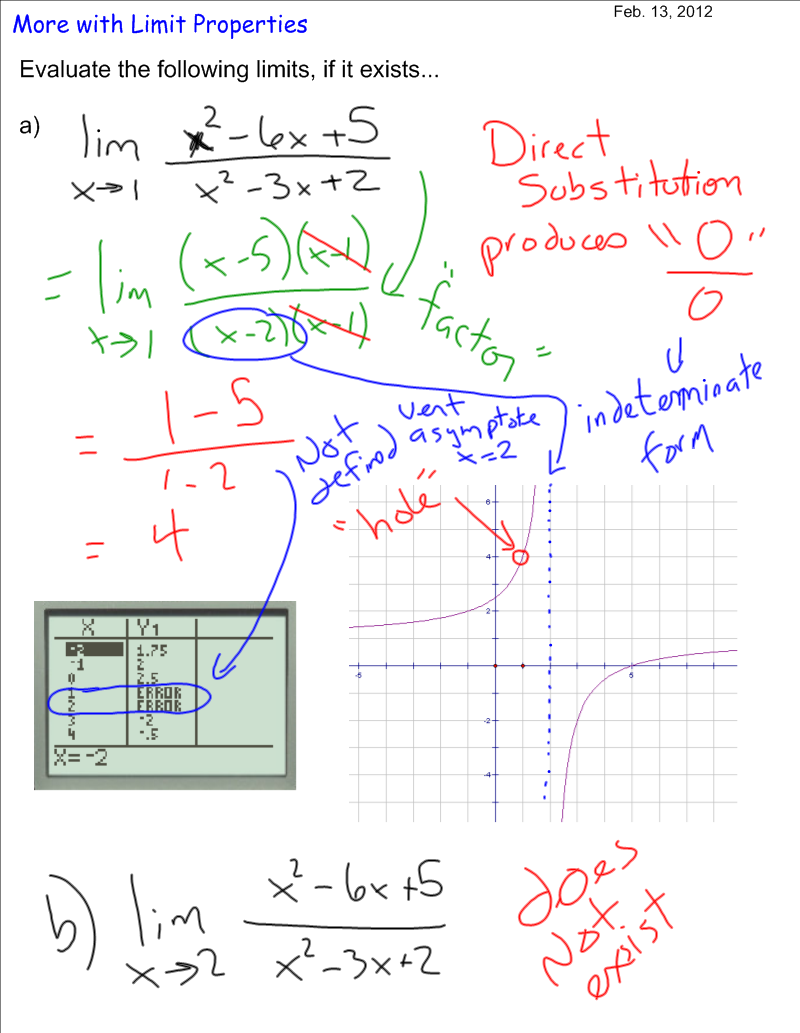 Feb. 13, 2012
More with Limit Properties
Evaluate the following limits, if it exists...
a)
lim x→1 (x² - 6x + 5)/(x² - 3x + 2)
Direct
Substitution
produces "0/0"
↓
indeterminate
form
= lim x→1 (x-5)(x-1)/(x-2)(x-1)
"factor"
= (1 - 5)/(1 - 2)
= 4
Not
defined
vert
asymptote
x=2
"hole"
X Y1
-2 1.75
-1 2
0 2.5
1 ERROR
2 ERROR
3 -2
4 -.5
X=-2
6
4
2
-5 5
-2
-4
b) lim x→2 (x² - 6x + 5)/(x² - 3x + 2)
does
Not
exist